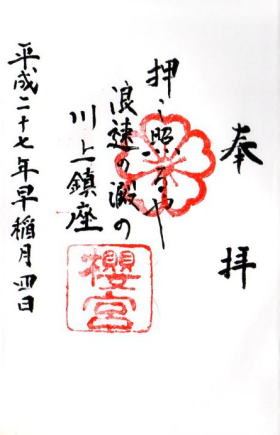 奉拝
押し照るや
浪速の瀬の
川上鎮座
櫻宮
平成二十七年早稲月四日